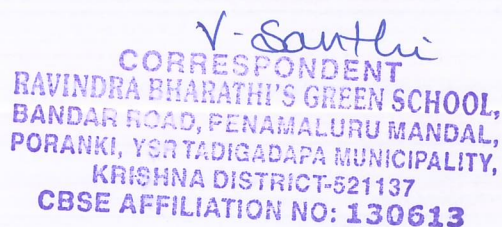 V. Santhi
CORRESPONDENT
RAVINDRA BHARATHI'S GREEN SCHOOL,
BANDAR ROAD, PENAMALURU MANDAL,
PORANKI, YSR TADIGADAPA MUNICIPALITY,
KRISHNA DISTRICT-521137
CBSE AFFILIATION NO: 130613